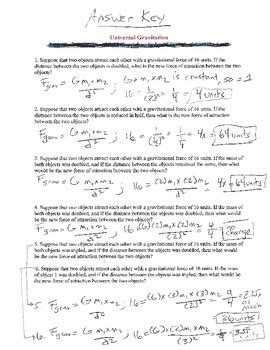 Answer Key
Universal Gravitation
1. Suppose that two objects attract each other with a gravitational force of 16 units. If the
distance between the two objects is doubled, what is the new force of attraction between the two
objects?
Fgrav = G m1 x m2 / d² ; G m1 x m2 is constant, so = 1
16 = 1/(2)² = 1/4 = 4 units
2. Suppose that two objects attract each other with a gravitational force of 16 units. If the
distance between the two objects is reduced in half, then what is the new force of attraction
between the two objects?
Fgrav = G m1 x m2 / d² ; 4x = 64 units
3. Suppose that two objects attract each other with a gravitational force of 16 units. If the mass of
both objects was doubled, and if the distance between the objects remained the same, then what
would be the new force of attraction between the two objects?
Fgrav = G m1 x m2 / d² ; 16 = (2) m1 x (2) m2 4x = 64 units
4. Suppose that two objects attract each other with a gravitational force of 16 units. If the mass of
both objects was doubled, and if the distance between the objects was doubled, then what would
be the new force of attraction between the two objects?
Fgrav = G m1 x m2 / d² ; 16 = (2) m1 x (2) m2 / (2)² no change
5. Suppose that two objects attract each other with a gravitational force of 16 units. If the mass of
both objects was tripled, and if the distance between the objects was doubled, then what would
be the new force of attraction between the two objects?
6. Suppose that two objects attract each other with a gravitational force of 16 units. If the mass
of object 1 was doubled, and if the distance between the objects was tripled, then what would be
the new force of attraction between the two objects?
5. Fgrav = G m1 x m2 / d² ; 9/4 = 2.25x 36 units
6. Fgrav = G m1 x m2 / d²